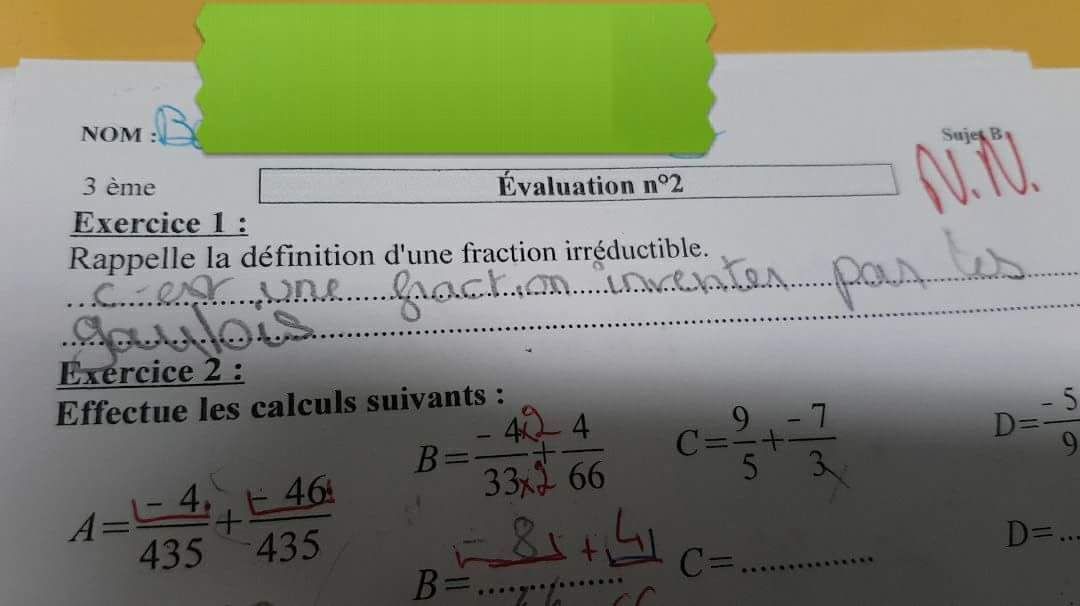 NOM : B
Sujet B
N.N.
3 ème
Évaluation n°2
Exercice 1 :
Rappelle la définition d'une fraction irréductible.
c-est une fraction inventer pas les
gaulois
Exercice 2 :
Effectue les calculs suivants :
A= - 4/435 + - 46/435
B= - 4x2/33x2 + 4/66
C= 9/5 + - 7/3
D= - 5/9
B= - 8 + 4
C=...............
D=...